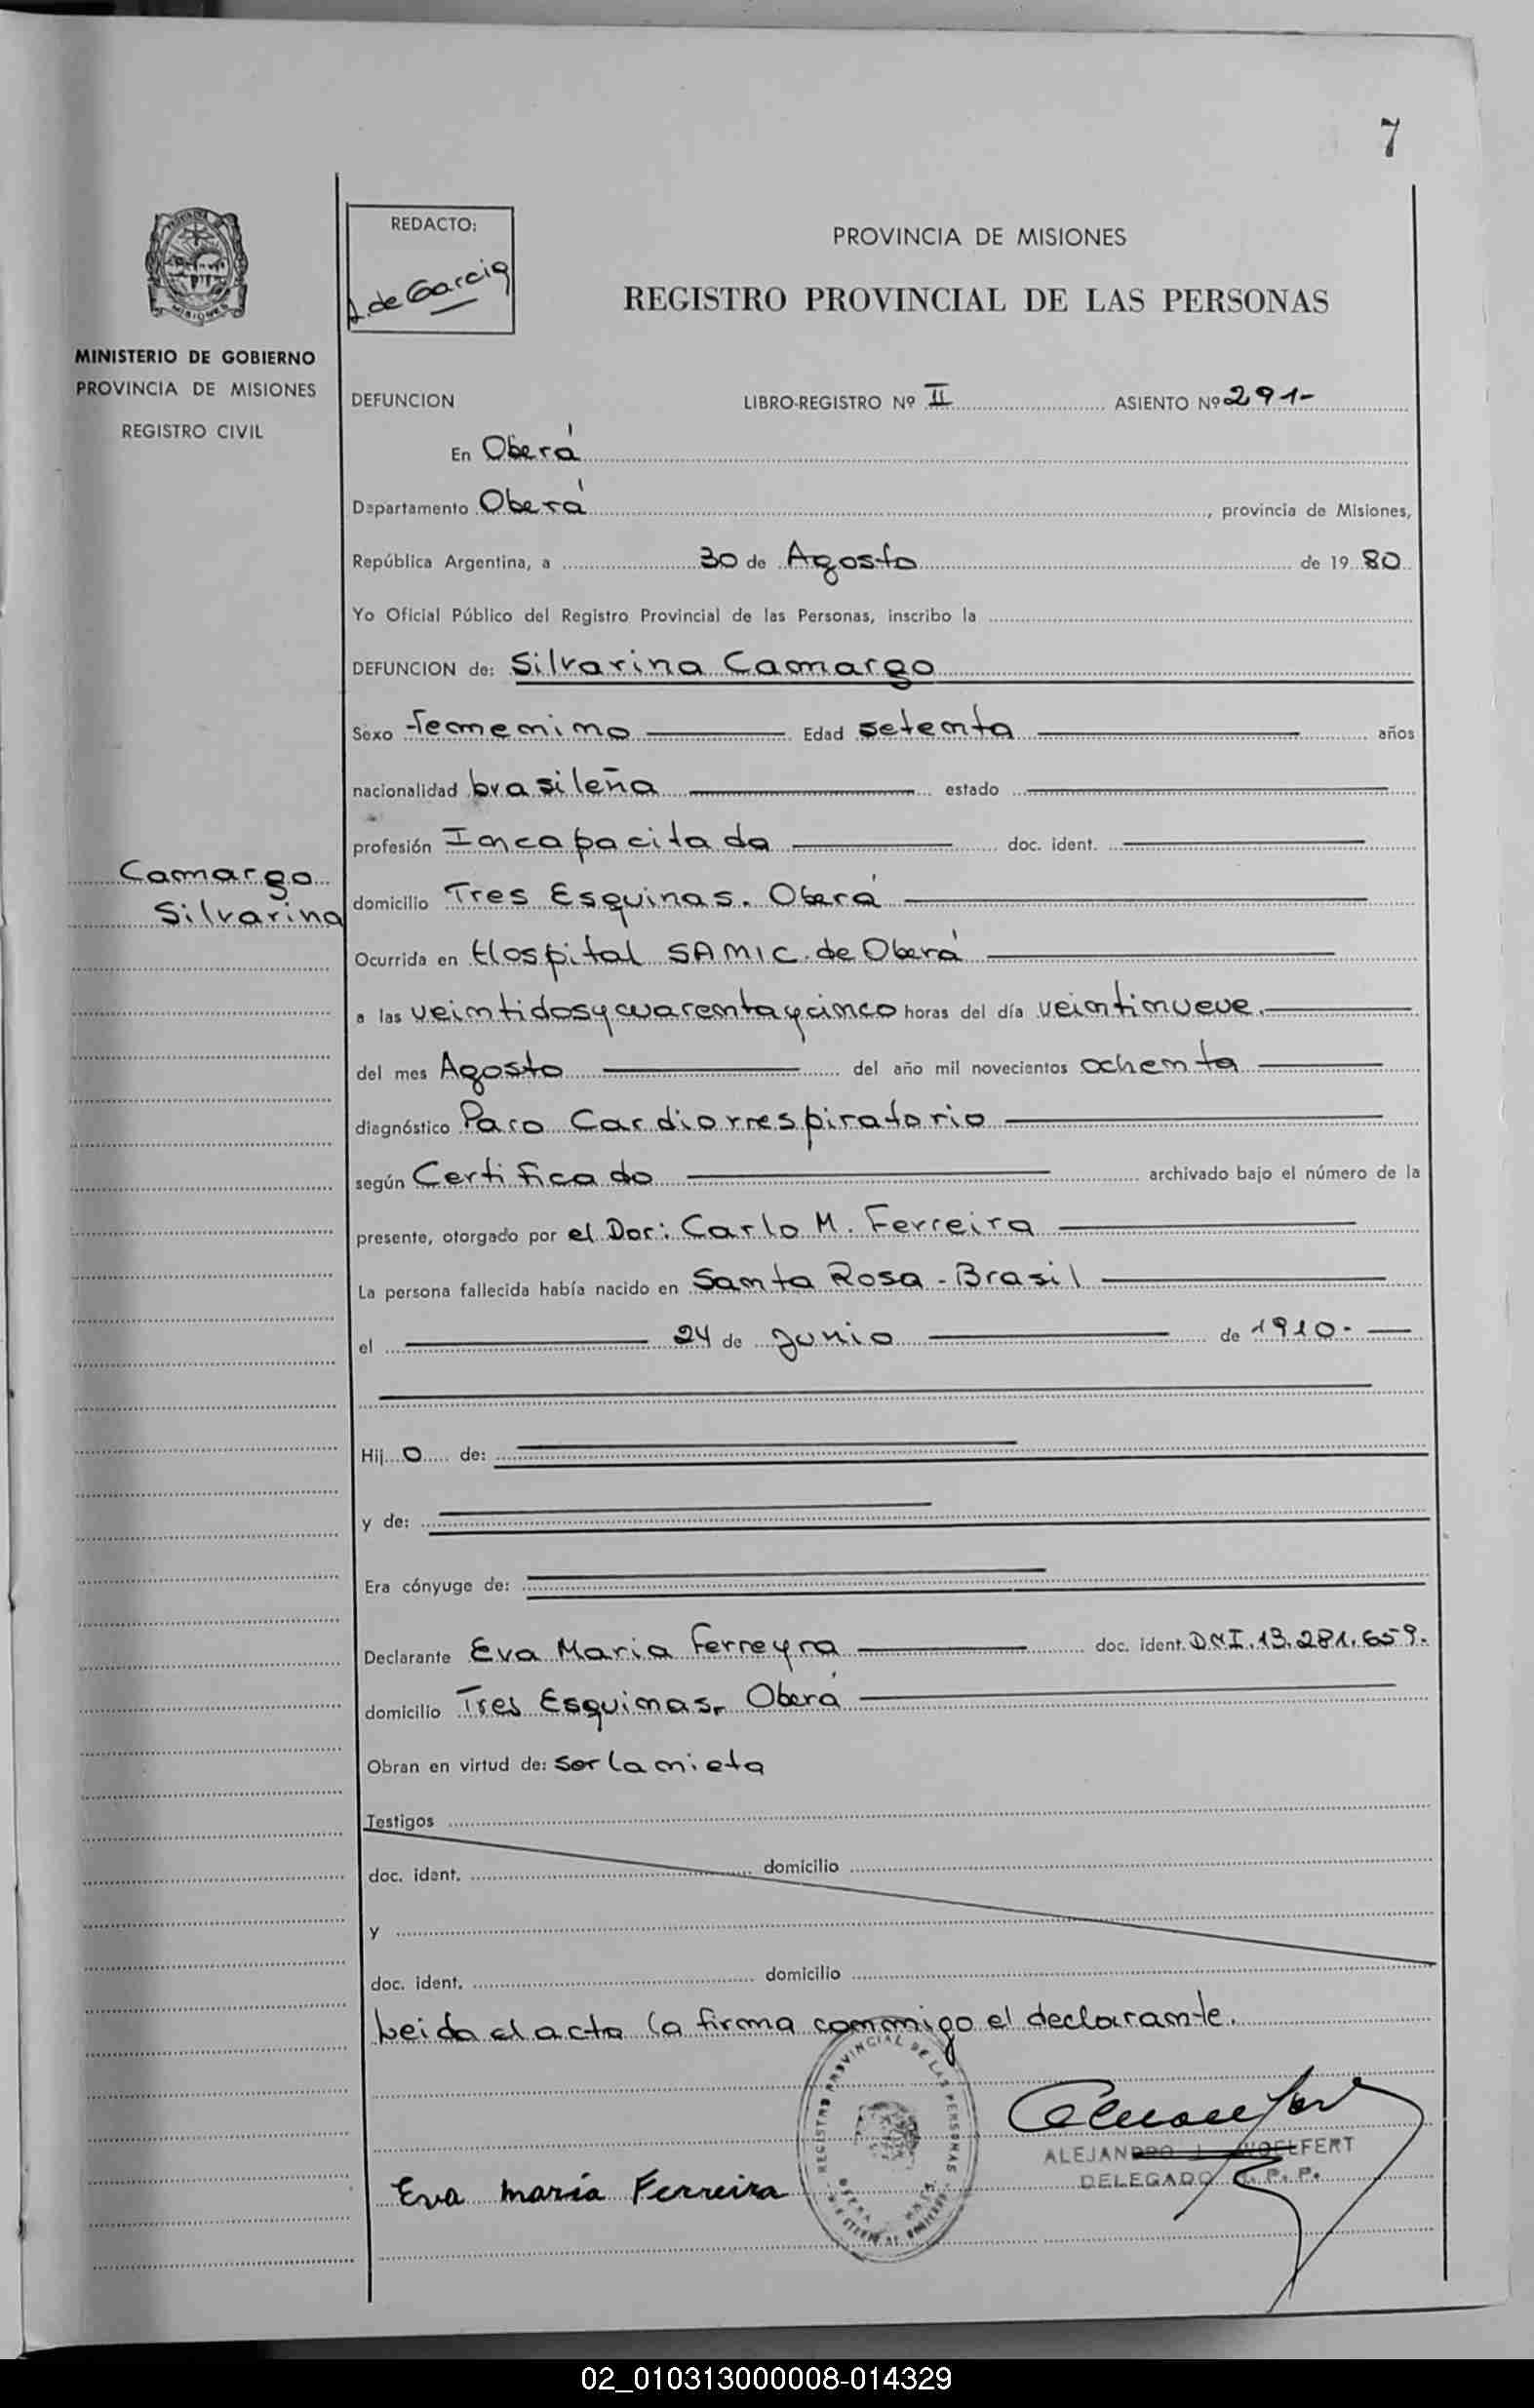 7
REDACTO:
de Garcia
PROVINCIA DE MISIONES
REGISTRO PROVINCIAL DE LAS PERSONAS
MISIONES
MINISTERIO DE GOBIERNO
PROVINCIA DE MISIONES
REGISTRO CIVIL
DEFUNCION LIBRO-REGISTRO Nº II ASIENTO Nº 291-
En Oberá
Departamento Oberá, provincia de Misiones,
República Argentina, a 30 de Agosto de 1980
Yo Oficial Público del Registro Provincial de las Personas, inscribo la
DEFUNCION de: Silvarina Camargo
Sexo femenino Edad setenta años
nacionalidad brasileña estado
profesión Incapacitada doc. ident.
Camargo
Silvarina
domicilio Tres Esquinas. Oberá
Ocurrida en Hospital SAMIC. de Oberá
a las veintidosycuarentaycinco horas del día veintinueve.
del mes Agosto del año mil novecientos ochenta
diagnóstico Paro Cardiorrespiratorio
según Certificado archivado bajo el número de la
presente, otorgado por el Dor: Carlo M. Ferreira
La persona fallecida había nacido en Santa Rosa - Brasil
el 24 de junio de 1910.
Hij o de:
y de:
Era cónyuge de:
Declarante Eva Maria Ferreyra doc. ident. DNI. 13.281.659.
domicilio Tres Esquinas, Oberá
Obran en virtud de: ser la nieta
Testigos
doc. ident. domicilio
y
doc. ident. domicilio
Leida el acta la firma conmigo el declarante.
REGISTRO PROVINCIAL DE LAS PERSONAS
ALEJANDRO J. WOELFERT
DELEGADO R. P. P.
Eva maría Ferreira
02_010313000008-014329